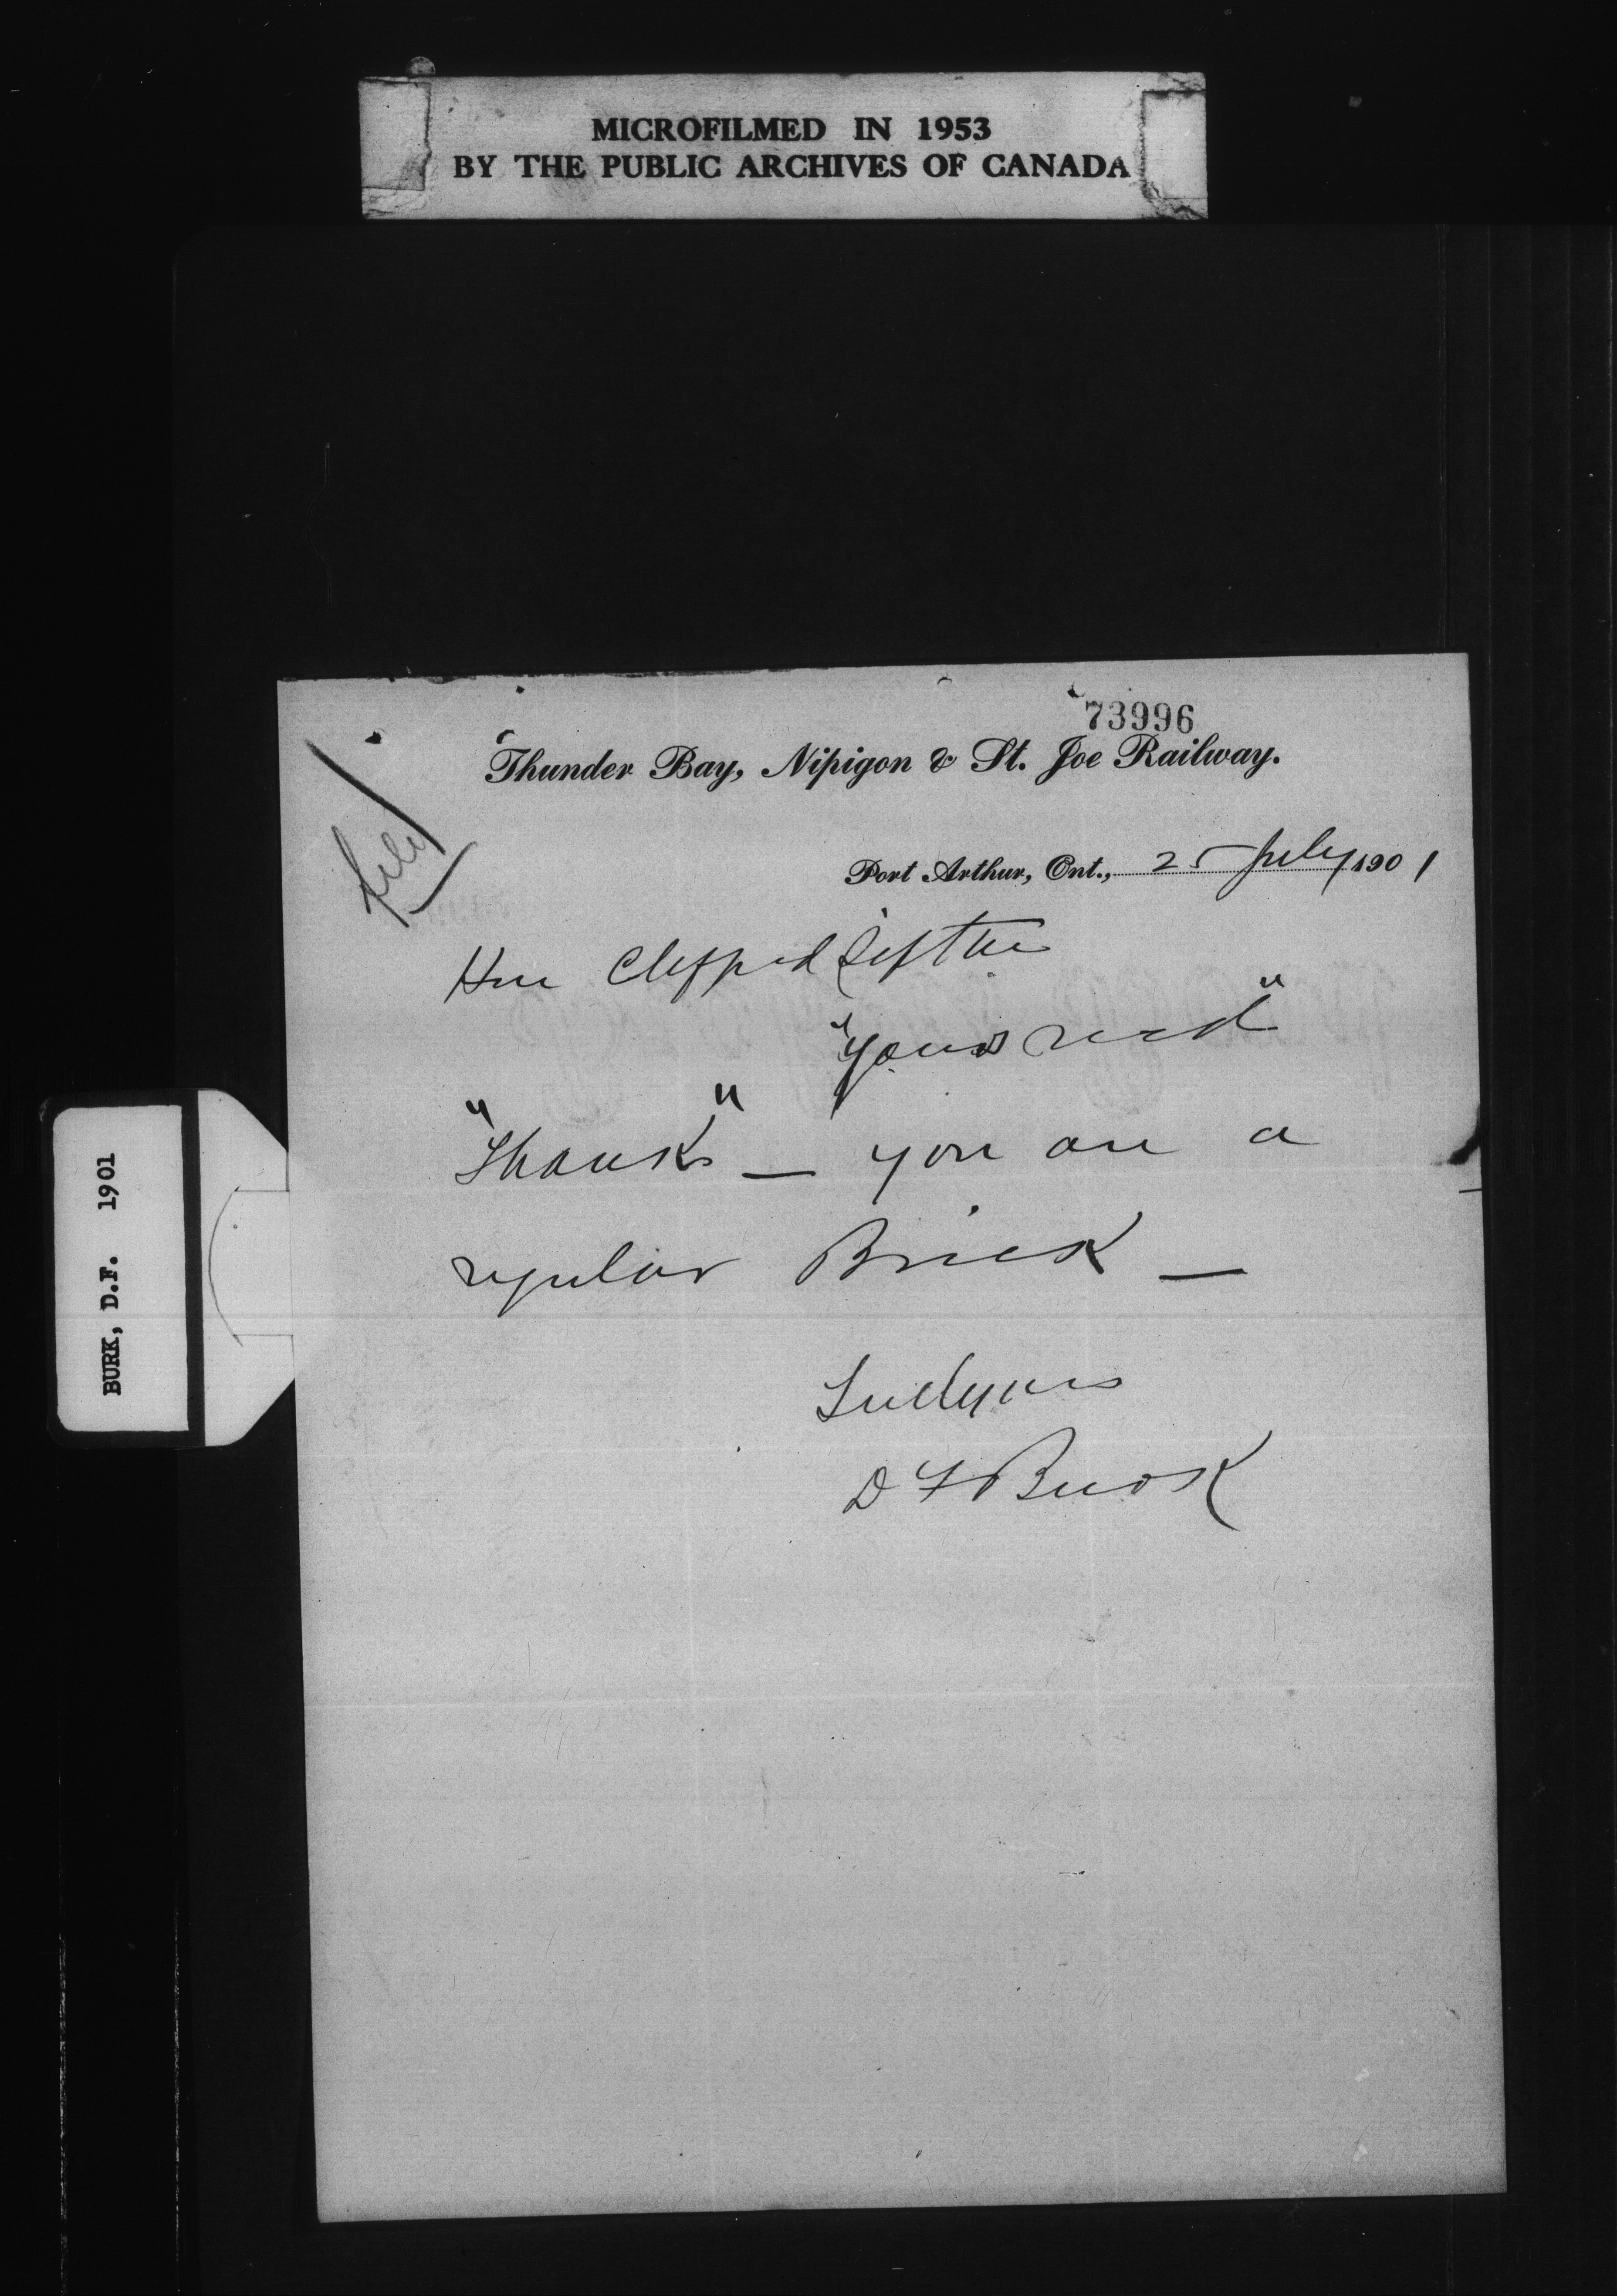 MICROFILMED IN 1953
BY THE PUBLIC ARCHIVES OF CANADA
73996
Thunder Bay, Nipigon & St. Joe Railway.
File
Port Arthur, Ont., 25 July 1901
Hon Clifford Sifton
"Yours recd"
"Thanks" — you are a
regular Brick —
Truly yours
D F Burk
BURK, D.F. 1901